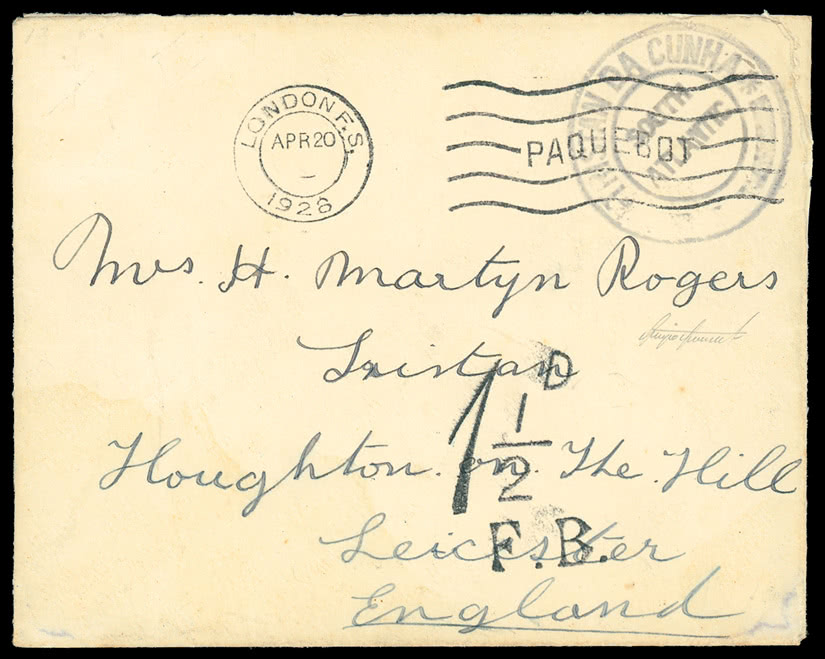 LONDON F.S.
APR 20
1928
PAQUEBOT
TRISTAN DA CUNHA
SOUTH
ATLANTIC
Mrs. H. Martyn Rogers
Tristan
Houghton. on. The. Hill
Leicester
England
1 1/2 D
F.B.